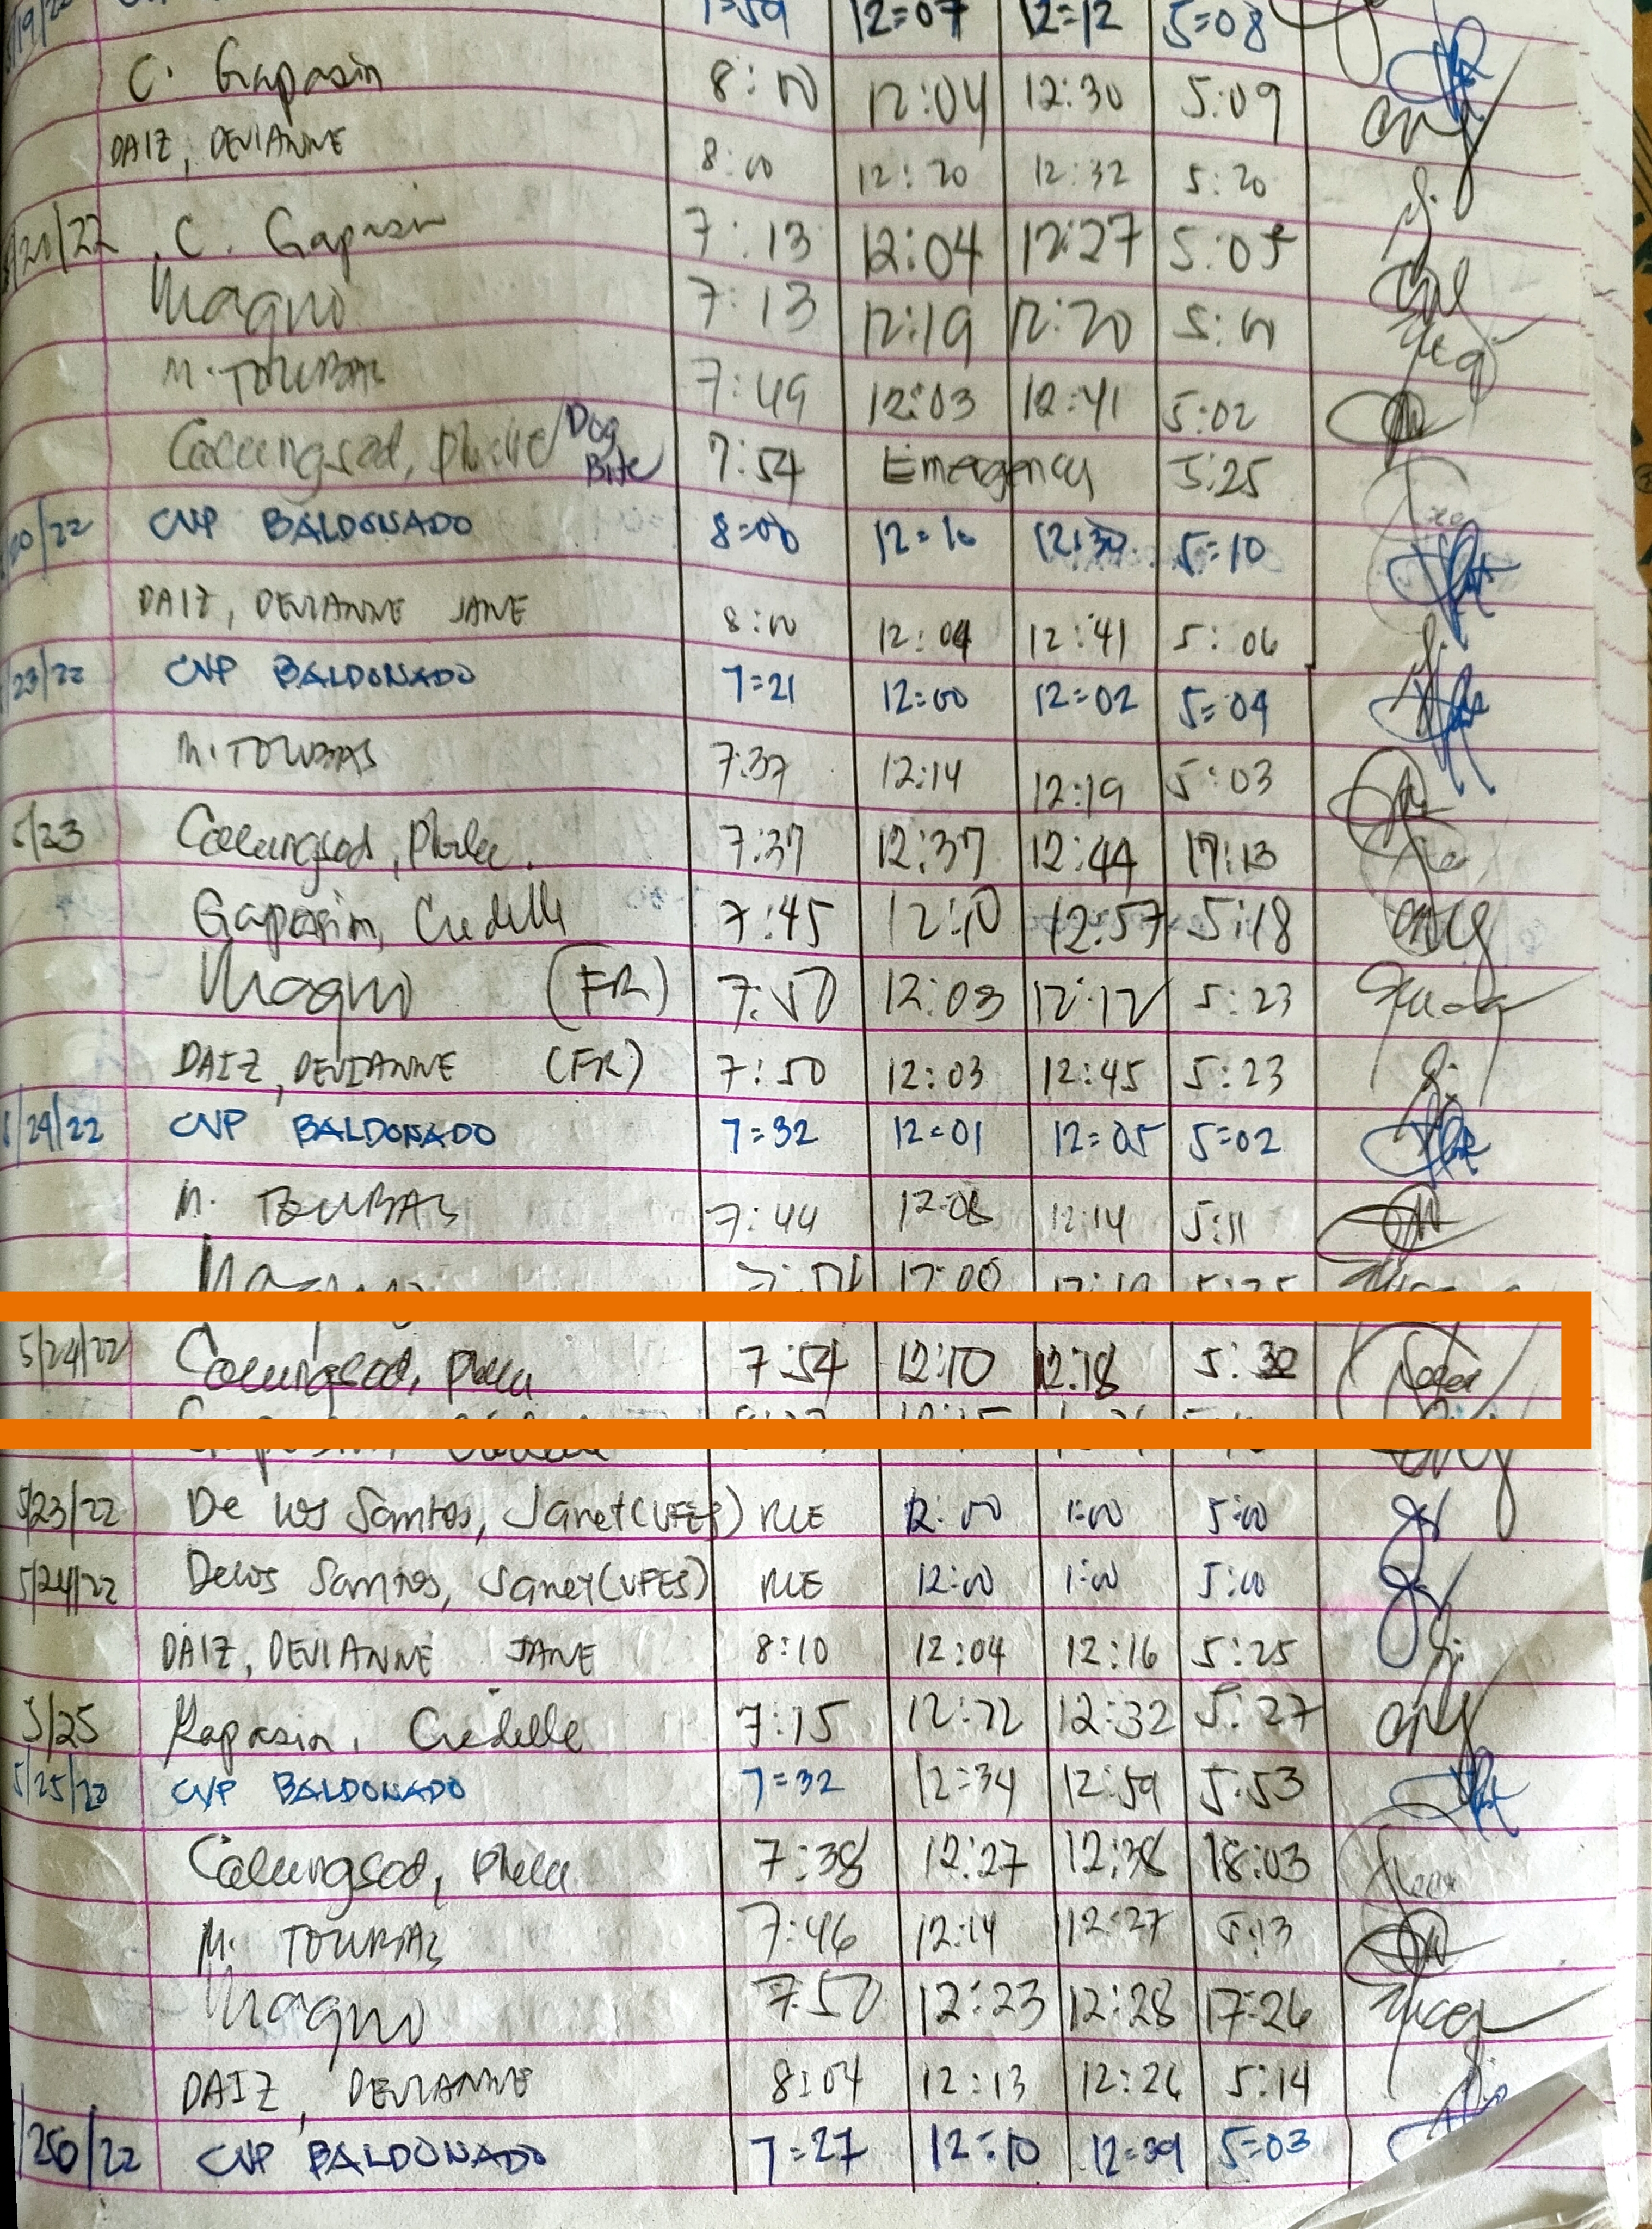 /19/22 1=59 12=07 12=12 5=08
C. Gapasin 8:00 12:04 12:30 5:09
DAIZ, DEVIANNE 8:00 12:20 12:32 5:20
/20/22 C. Gapasin 7:13 12:04 12:27 5:05
Magno 7:13 12:19 12:20 5:00
M. TOLUBAS 7:49 12:03 12:41 5:02
Calungsod, /Dog Bite 7:54 Emergency 5:25
/20/22 CVP BALDONADO 8=00 12=10 12:30 5=10
DAIZ, DEVIANNE JANE 8:00 12:04 12:41 5:06
/23/22 CVP BALDONADO 7=21 12=00 12=02 5=04
M. TOLUBAS 7:37 12:14 12:19 5:03
5/23 Calungsod, 7:37 12:37 12:44 17:13
Gapasin, Credelle 7:45 12:10 12:57 5:18
Magno (FR) 7:50 12:03 12:12 5:23
DAIZ, DEVIANNE (FR) 7:50 12:03 12:45 5:23
/24/22 CVP BALDONADO 7=32 12=01 12=05 5=02
M. TOLUBAS 7:44 12:08 12:14 5:11
Magno 12:00 5:25
5/24/22 Calungsod, 7:54 12:10 12:18 5:32
Gapasin, Credelle
5/23/22 De los Santos, Janet (VFES) RLE 12:00 1:00 5:00
5/24/22 Delos Santos, Janet (VFES) RLE 12:00 1:00 5:00
DAIZ, DEVIANNE JANE 8:10 12:04 12:16 5:25
5/25 Gapasin, Credelle 7:15 12:22 12:32 5:27
5/25/22 CVP BALDONADO 7=32 12=34 12=59 5:53
Calungsod, 7:38 12:27 12:38 18:03
M. TOLUBAS 7:46 12:14 12:27 5:13
Magno 7:50 12:23 12:28 17:26
DAIZ, DEVIANNE 8:04 12:13 12:26 5:14
/26/22 CVP BALDONADO 7=27 12=10 12=39 5=03